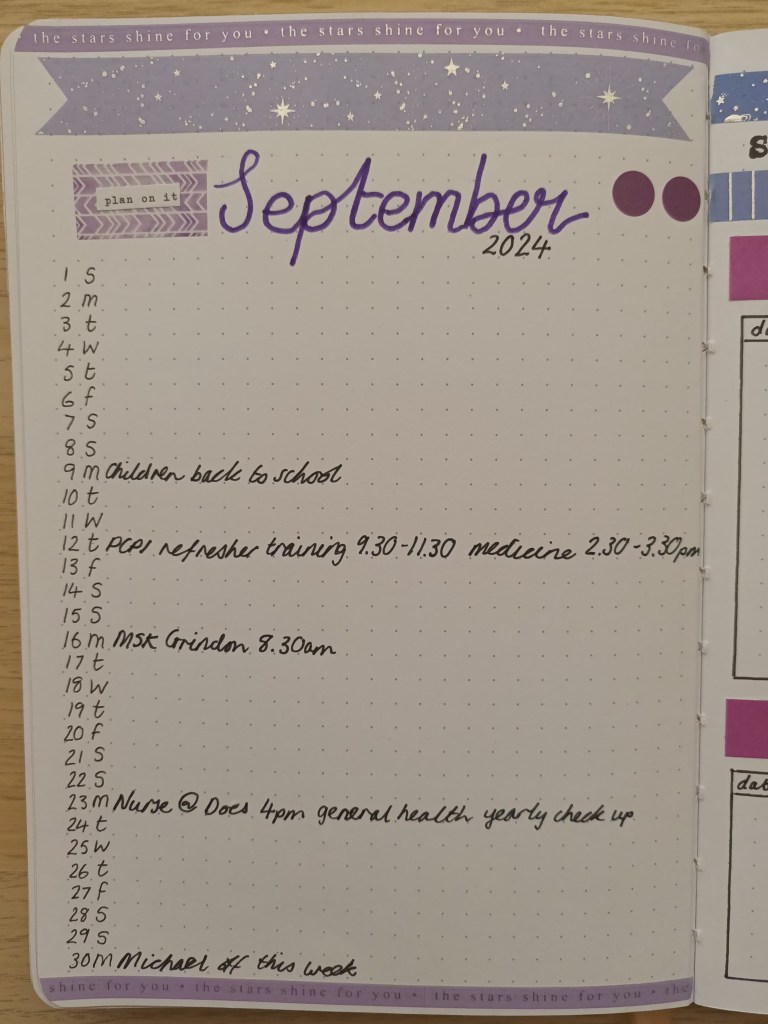 the stars shine for you • the stars shine for you • the stars shine fo
plan on it
September
2024
1 S
2 m
3 t
4 W
5 t
6 f
7 S
8 S
9 m Children back to school
10 t
11 W
12 t refresher training 9.30-11.30 medicine 2.30-3.30pm
13 f
14 S
15 S
16 m MSK Grindon 8.30am
17 t
18 W
19 t
20 f
21 S
22 S
23 m Nurse @ Docs 4pm general health yearly check up
24 t
25 W
26 t
27 f
28 S
29 S
30 m Michael off this week
shine for you • the stars shine for you • the stars shine for you • the
S
da
dat